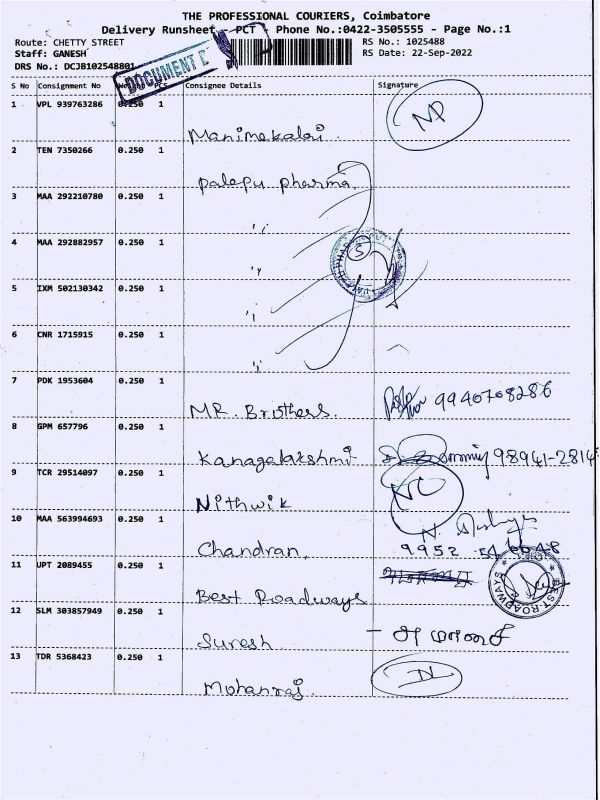 THE PROFESSIONAL COURIERS, Coimbatore
Delivery Runsheet - PCT - Phone No.:0422-3505555 - Page No.:1
Route: CHETTY STREET
RS No.: 1025488
Staff: GANESH
RS Date: 22-Sep-2022
DRS No.: DCJB102548801
DOCUMENT
S No Consignment No Consignee Details Signature
1 VPL 939763286 0.250 1
Manimekalai
2 TEN 7350266 0.250 1
palepu pharma
3 MAA 292210780 0.250 1
"
4 MAA 292882957 0.250 1
"
5 IXM 502130342 0.250 1
"
6 CNR 1715915 0.250 1
"
7 PDK 1953604 0.250 1
MR. Brothers. 9940708286
8 GPM 657796 0.250 1
Kanagalakshmi 98941-2814
9 TCR 29514097 0.250 1
Nithwik
10 MAA 563994693 0.250 1
Chandran, 9952
11 UPT 2089455 0.250 1
Best Roadways
BEST ROADWAYS
12 SLM 303857949 0.250 1
Suresh
13 TDR 5368423 0.250 1
Mohanraj